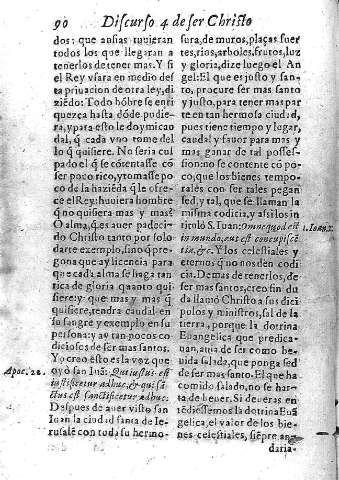 90 Discurso 4 de ser Christo
dos; que ansias tuuieran
todos los que llegaran a
tenerlos de tener mas. Y si
el Rey vsara en medio des
ta priuacion de otra ley, di
ziẽdo: Todo hõbre se enri
quezca hasta dõde pudie-
ra, y para esto le doy mi cau
dal, q̃ cada vno tome del
lo q̃ quisiere. No seria cul
pado el q̃ se cõtentasse cõ
ser poco rico, y tomasse po
co de la haziẽda q̃ le ofre-
ce el Rey: huuiera hombre
q̃ no quisiera mas y mas?
O alma, q̃ es auer padeci-
do Christo tanto por solo
darte exemplo, sino q̃ pre-
gona que ay licencia, para
que cada alma se haga tan
rica de gloria quanto qui
siere: y que mas y mas q̃
quisiere, tendra caudal en
su sangre y exemplo en su
persona: y ay tan pocos co
diciosos de ser mas santos.
Yo creo ẽsto es la voz que
Apoc. 22. oyò san Iuã: Qui iustus est
iustificetur adhuc, & qui sã
ctus est sanctificetur adhuc.
Daspues de auer visto san
Iuan la ciudad santa de Ie-
rusalẽ con toda su hermo-
sura, de muros, plaças fuer
tes, rios, arboles, frutos, luz
y gloria, dize luego el An
gel: El que es justo y san-
to, procure ser mas santo
y justo, para tener mas par
te en tan hermosa ciudad,
pues tiene tiempo y lugar,
caudal y fauor para mas y
mas ganar de tal posses-
sion: no se contente cõ po
co, que los bienes tempo-
rales con ser tales pegan
sed, y tal, que se llaman la
misma codicia, y assi los in
tituló S. Iuan: Omne quod est 1. Ioan. 2.
in mundo, aut est concupiscẽ
tia, &c. Y los celestiales y
eternos q̃ no nos den codi
cia. Demas de tenerlos, de
ser mas santos, creo fin du
da llamó Christo a sus dici
pulos y ministros, sal de la
tierra, porque la dotrina
Euangelica que predica-
uan, auia de ser como be-
uida salada, que ponga sed
de ser mas santo. El que ha
comido salado, no se har-
ta de beuer. Si de ueras en
tẽdiessemos la dotrina Euã
gelica, el valor de los bie-
nes celestiales, siẽpre an-
daria-